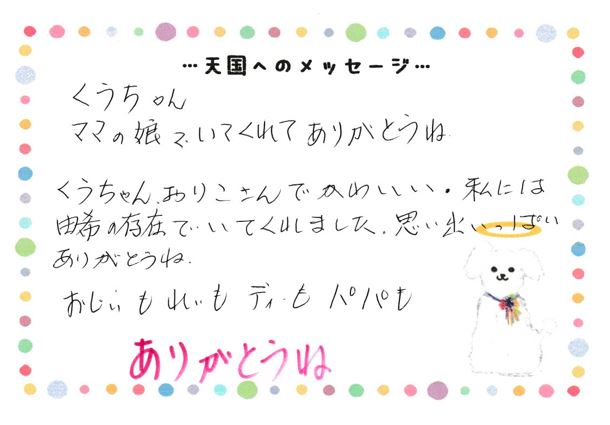 …天国へのメッセージ…
くうちゃん
ママの娘でいてくれてありがとうね
くうちゃん、おりこさんでかわいいい・私には
由希の存在でいてくれました、思い出いっぱい
ありがとうね
おじいもれいもディーもパパも
ありがとうね